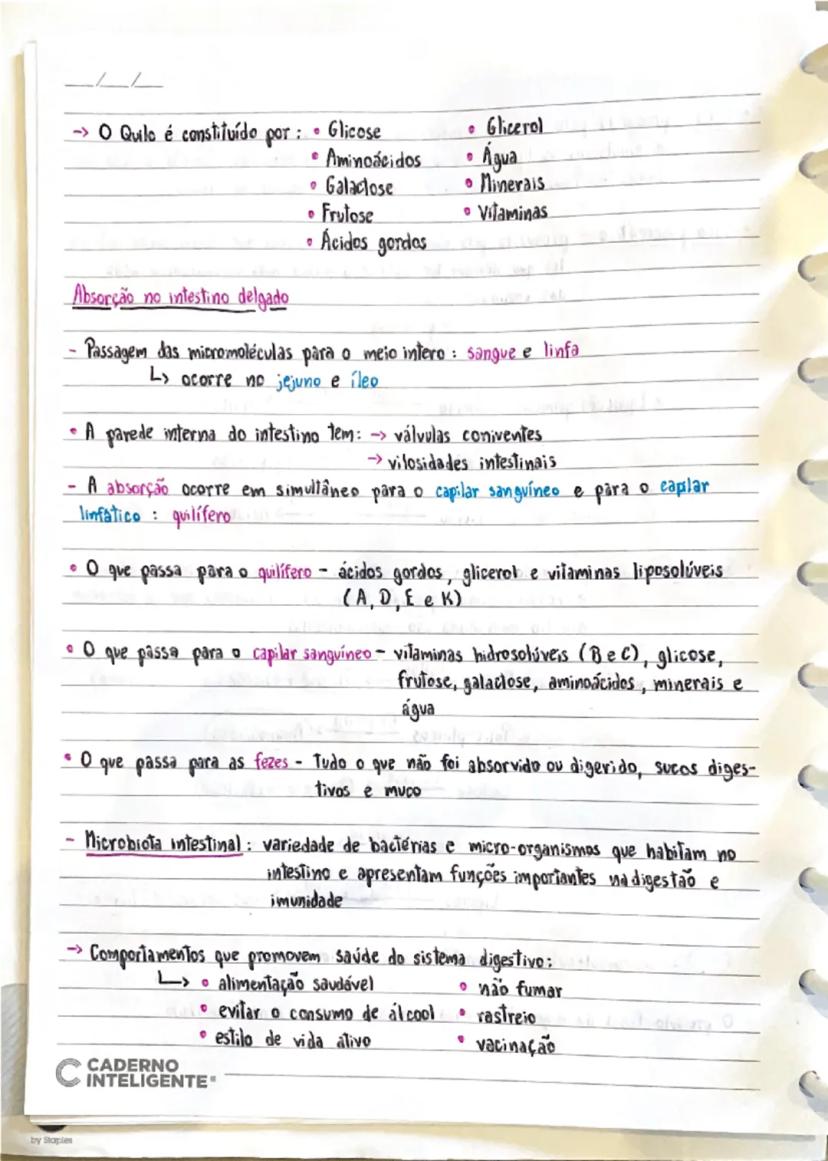 __/__/__
→ O Quilo é constituído por : • Glicose • Glicerol
• Aminoácidos • Água
• Galactose • Minerais
• Frutose • Vitaminas
• Ácidos gordos
Absorção no intestino delgado
- Passagem das micromoléculas para o meio intero : sangue e linfa
↳ ocorre no jejuno e íleo
• A parede interna do intestino tem: → válvulas coniventes
→ vilosidades intestinais
- A absorção ocorre em simultâneo para o capilar sanguíneo e para o capilar
linfático : quilífero
• O que passa para o quilífero - ácidos gordos, glicerol e vitaminas liposolúveis
(A, D, E e K)
• O que passa para o capilar sanguíneo - vitaminas hidrosolúveis (B e C), glicose,
frutose, galactose, aminoácidos, minerais e
água
• O que passa para as fezes - Tudo o que não foi absorvido ou digerido, sucos diges-
tivos e muco
- Microbiota intestinal : variedade de bactérias e micro-organismos que habitam no
intestino e apresentam funções importantes na digestão e
imunidade
→ Comportamentos que promovem saúde do sistema digestivo:
↳ • alimentação saudável • não fumar
• evitar o consumo de álcool • rastreio
• estilo de vida ativo • vacinação
CADERNO
INTELIGENTE®
by Staples